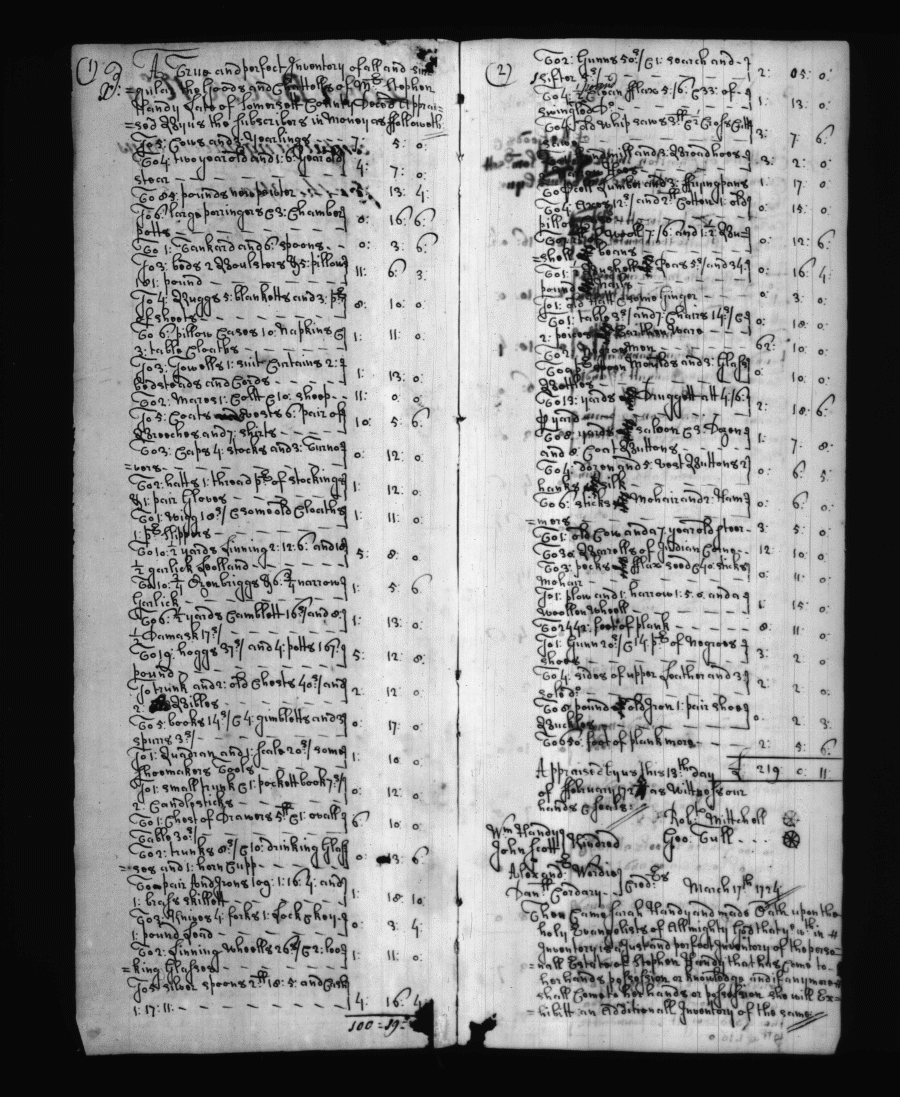 (1)
A True and perfect Inventory of all and Sin
=gular the Goods and Chattells of Mr. Stephen
Handy Late of Somersett County Deced Apprai=
=sed By us the Subscribers in Money as ffolloweth
To 3: Cows and 3: Yearlings - - 7: 5: 0:
To 4 two year old and 1: 6: year old
steer - - - 4: 7: 0:
To 85 pounds new pewter - - - 13: 4:
To 6: large porringers & 3: Chamber
potts - - - 0: 16: 6:
To 1: Tankard and 6: spoons - - 0: 3: 6:
To 3: beds 2 Boulsters & 5: pillow
pound - - - 11: 6: 3
To 4: Ruggs 5: blanketts and 3: pr
of sheets - - - 8: 10: 0:
To 6: pillow Cases 10: Napkins &
3: table Cloaths - - - 1: 11: 0:
To 3: Towells 1: suit Curtains 2:
bedsteads and Cords - - - 1: 13: 0:
To 2: Mares 1: Colt & 10: sheep - - 11: 0: 0
To 5: Coats and vests 6: pair of
Breeches and 7: shirts - - - 10: 5: 6
To 3: Caps 4: stocks and 3: Turno
=vers - - - 0: 12: 0:
To 2: hatts 1: thread pr of stockings
& 1: pair Gloves - - - 1: 12: 0:
To 1: Wigg 18s/ & some old Cloaths
1: pr slippers - - - 1: 11: 0:
To 10: ½ yards Linning 2: 12: 6: and 18
½ garlick holland - - - 5: 8: 0:
To 10: ¼ Ozenbriggs & 6: ¾ narrow
garlick - - - 1: 5: 6
To 6: ½ yards Camblett 16s/ and 8:
½ Damask 17s/ - - - 1: 13: 0:
To 19: hoggs 37s/ and 4: potts 167
pound - - - 5: 12: 8:
To trunk and 2: old Chests 40s/ and
2: Bibles - - - 2: 12: 0
To 5: books 14s/ & 4: gimbletts and 3
spurs 3s/ - - - 0: 17: 0:
To 1: Quadran and 1: scale 20s/ some
Shoemakers Tools - - - 1: 10: 0:
To 1: small trunk & 1: pockett book 7s/
2: Candlesticks - - - 0: 12: 0:
To 1: Chest of Drawers 5ll & 1: ovall
table 30s/ - - - 6: 10: 0:
To 2: trunks 8s/ & 10: drinking Glass
=ses and 1: horn Cupp - - - 0: 13: 6:
To one pair Andirons 109: 1: 16: 4: and
1: brass skillett - - - 1: 18: 10:
To 3: Knives 4: forks 1: Lock & key
1: pound Lead - - - 0: 3: 4:
To 2: Linning wheells 26s/ & 2: loo
=king Glasses - - - 1: 11: 0:
To 5: silver spoons 2ll: 18: 5: and Cash
1: 17: 11: - - - 4: 16: 4
100 = 19 =
(2)
To 2: Gunns 50s/ & 1: search and
1 sifter 3s/ - - - 2: 05: 0:
To 4: Clean fflax 5: 16: & 33: of
swingled Do - - - 1: 13: 0:
To 4: old whip saws 3ll & 2 Cross Cutt
saws - - - 3: 7: 6:
handmill and 3: Broad hoes
hoes - - - 3: 2: 0:
and 3: ffrying pans 1: 17: 0:
To 4: Axes 12s/ and 2ll Cotton 1: old
pillow - - - 0: 15: 0:
wooll 7/6: and 1: ½ Bu=
=shell beans - - - 0: 12: 6:
To 1: Bushell Peas 5s/ and 34
pound - - - 0: 16: 4:
To 1: old Hatt & some Ginger - - 0: 3: 0:
To 1: table 3s/ and 7: Chairs 14s/ &
2: peices Earthen Ware - - 0: 18: 0:
To 2: - - - 62: 10: 0:
spoon Moulds and 3: Glass
Bottles - - - 0: 10: 0:
To 13: yards Druggett att 4/6
p yard - - - 2: 18: 6:
To 8: yards saloon & 3 Dozen
and 8: Coat Buttons - - - 1: 7: 8:
To 4: dozen and 5: vest Buttons 2
hanks silk - - - 0: 6: 5:
To 6: sticks Mohair and 2: Ham
=mers - - - 0: 6: 0:
To 1: old Cow and a 7 year old steer - 3: 5: 0:
To 30: Barrells of Indian Corne - - 12: 10: 0:
To 3: pecks fflax seed & 40: sticks
Mohair - - - 0: 11: 0:
To 1: plow and 1: harrow 1: 5: 0: and a
woollen wheell - - - 1: 15: 0:
To 2442: foot of plank - - - 8: 11: 0:
To 1: Gunn 20s/ & 14 pr of Negroes
shoes - - - 3: 2: 0:
To 4: sides of upper Leather and 3
sole Do - - - 2: 2: 0:
To 8: pounds old Iron 1: pair shoe
Buckles - - - 0: 2: 3:
To 650: foot of plank more - - - 2: 5: 6:
£ 219: 0: 11:
Appraised by us this 13th day
of ffebruary as Wittness our
hands & seals:
Robt. Mittchell
Geo: Tull
Wm Handy
John Scott } Kindred
Alexandr Wordie
Danll Cordary - } Credrs
March 17th 1724
Then Came Sarah Handy and made Oath upon the
holy Evangelists of Allmighty God that ye within
Inventory is a Just and perfect Inventory of the perso=
=nall Estate of Stephen Handy that has Come to
her hands possession or knowledge and if any more
shall Come to her hands or possession she will Ex=
=hibitt an Additionall Inventory of the same